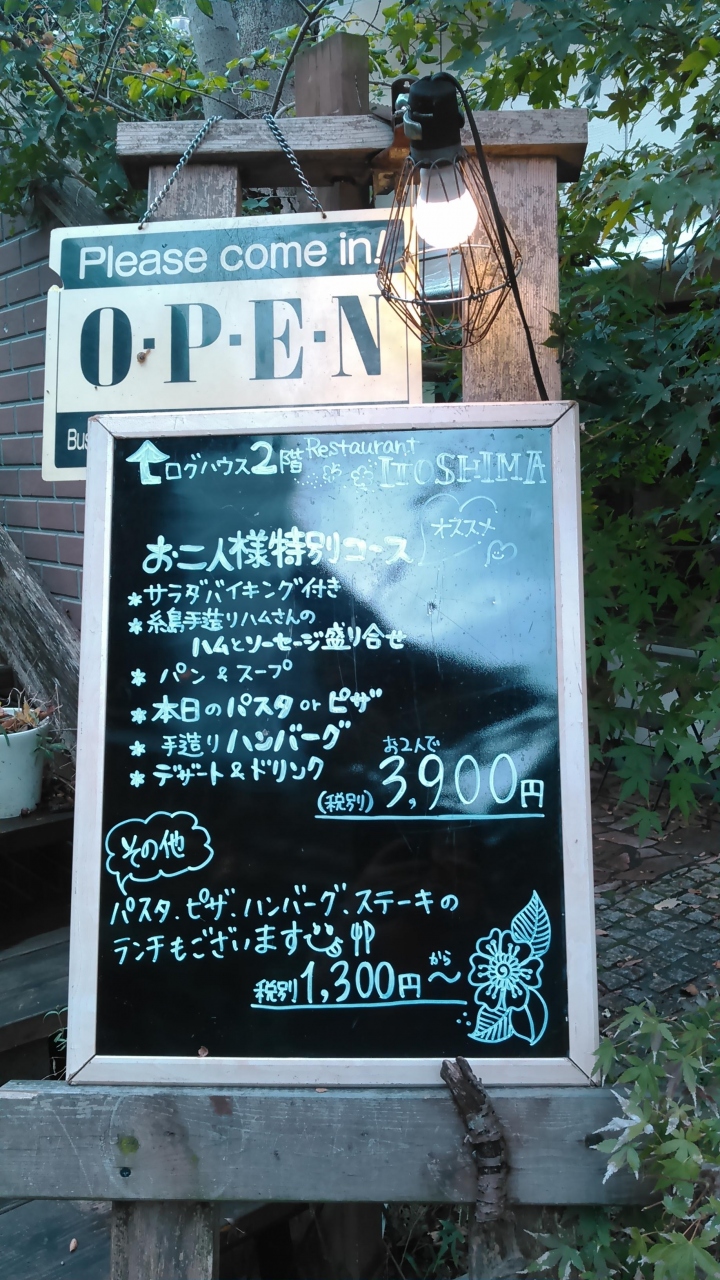 Please come in!
O·P·E·N
Bus
ログハウス2階 Restaurant
ITOSHIMA
オススメ
お二人様特別コース
*サラダバイキング付き
*糸島手造りハムさんの
ハムとソーセージ盛り合せ
* パン & スープ
*本日のパスタ or ピザ
* 手造りハンバーグ
*デザート&ドリンク
お2人で
(税別) 3,900円
その他
パスタ、ピザ、ハンバーグ、ステーキの
ランチもございます
税別1,300円から〜